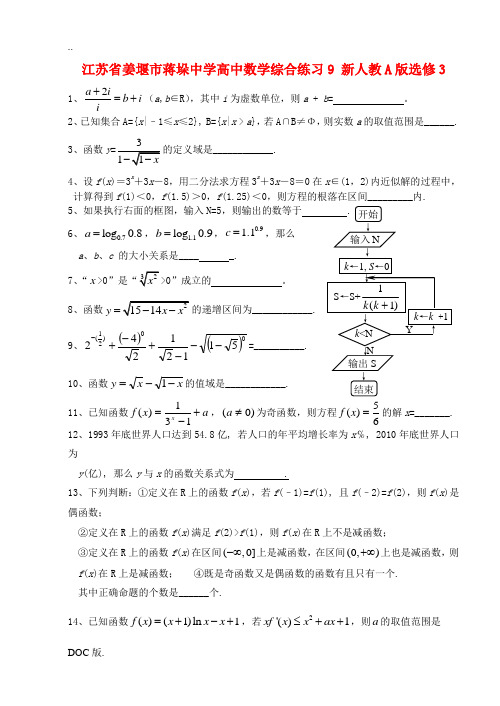 ..
江苏省姜堰市蒋垛中学高中数学综合练习9 新人教A版选修3
1、$\frac{a+2i}{i}=b+i$（a,b∈R），其中i为虚数单位，则a + b=        。
2、已知集合A={x|﹣1≤x≤2}, B={x|x＞a},若A∩B≠Φ,则实数a的取值范围是______.
3、函数y=$\frac{3}{1-\sqrt{1-x}}$的定义域是____________.
4、设f(x)＝3^x＋3x－8，用二分法求方程3^x＋3x－8＝0在x∈(1，2)内近似解的过程中，
计算得到f(1)＜0，f(1.5)＞0，f(1.25)＜0，则方程的根落在区间_________内.
5、如果执行右面的框图，输入N=5，则输出的数等于        .
6、$a=\log_{0.7}0.8$，$b=\log_{1.1}0.9$，$c=1.1^{0.9}$，那么
a、b、c 的大小关系是____ _.
7、“x>0”是“$\sqrt[3]{x^2}$>0”成立的        。
8、函数$y=\sqrt{15-14x-x^2}$的递增区间为____________.
9、$2^{-(\frac{1}{2})}+\frac{(-4)^0}{\sqrt{2}}+\frac{1}{\sqrt{2}-1}-\sqrt{(1-\sqrt{5})^0}$=__________.
10、函数$y=\sqrt{x}-\sqrt{1-x}$的值域是____________.
11、已知函数$f(x)=\frac{1}{3^x-1}+a$，$(a\neq 0)$为奇函数，则方程$f(x)=\frac{5}{6}$的解x=_______.
12、1993年底世界人口达到54.8亿, 若人口的年平均增长率为x％，2010年底世界人口
为
y(亿), 那么y与x的函数关系式为        .
13、下列判断：①定义在R上的函数f(x)，若f(﹣1)=f(1), 且f(﹣2)=f(2)，则f(x)是
偶函数；
②定义在R上的函数f(x)满足f(2)>f(1)，则f(x)在R上不是减函数；
③定义在R上的函数f(x)在区间$(-\infty,0]$上是减函数，在区间$(0,+\infty)$上也是减函数，则
f(x)在R上是减函数； ④既是奇函数又是偶函数的函数有且只有一个.
其中正确命题的个数是______个.
14、已知函数$f(x)=(x+1)\ln x-x+1$，若$xf'(x)\leq x^2+ax+1$，则a的取值范围是
开始
输入N
k←1, S←0
S←S+$\frac{1}{k(k+1)}$
k←k +1
k<N
Y
N
输出S
结束
DOC版.